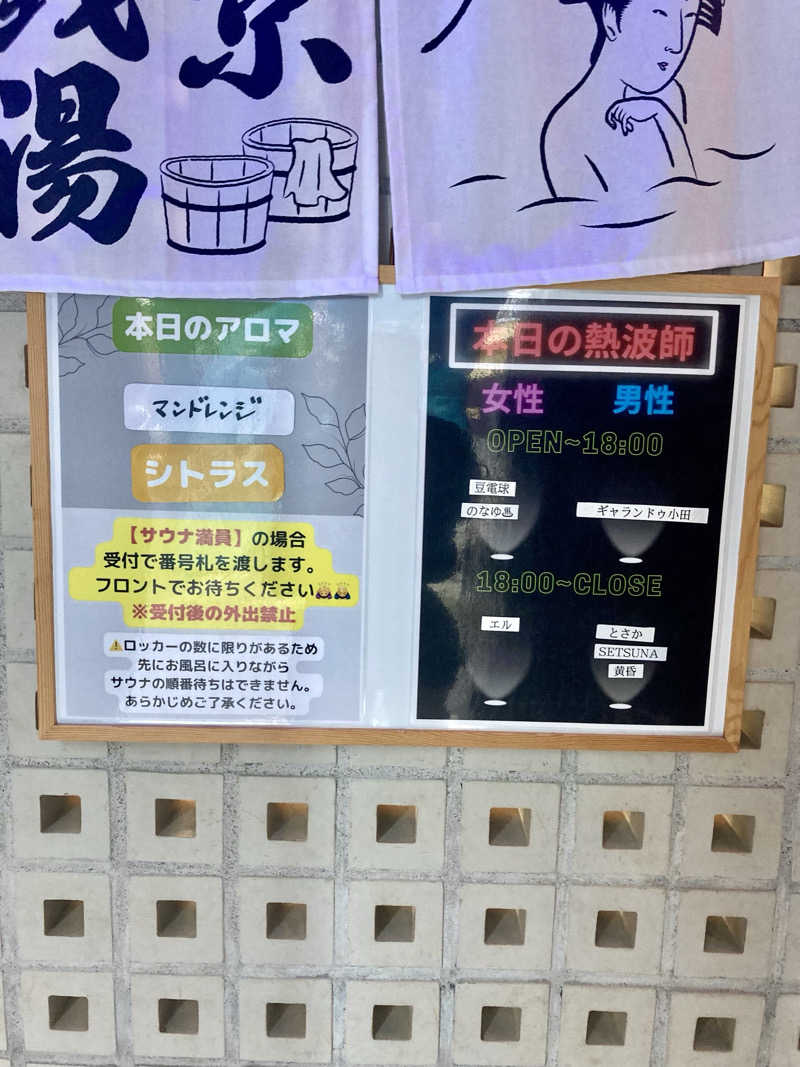 京
湯
本日のアロマ
マンドレンジ
シトラス
【サウナ満員】の場合
受付で番号札を渡します。
フロントでお待ちください🙇‍♀️🙇‍♂️
※受付後の外出禁止
⚠️ロッカーの数に限りがあるため
先にお風呂に入りながら
サウナの順番待ちはできません。
あらかじめご了承ください。
本日の熱波師
女性 男性
OPEN~18:00
豆電球
のなゆ♨
ギャランドゥ小田
18:00~CLOSE
エル
とさか
SETSUNA
黄昏